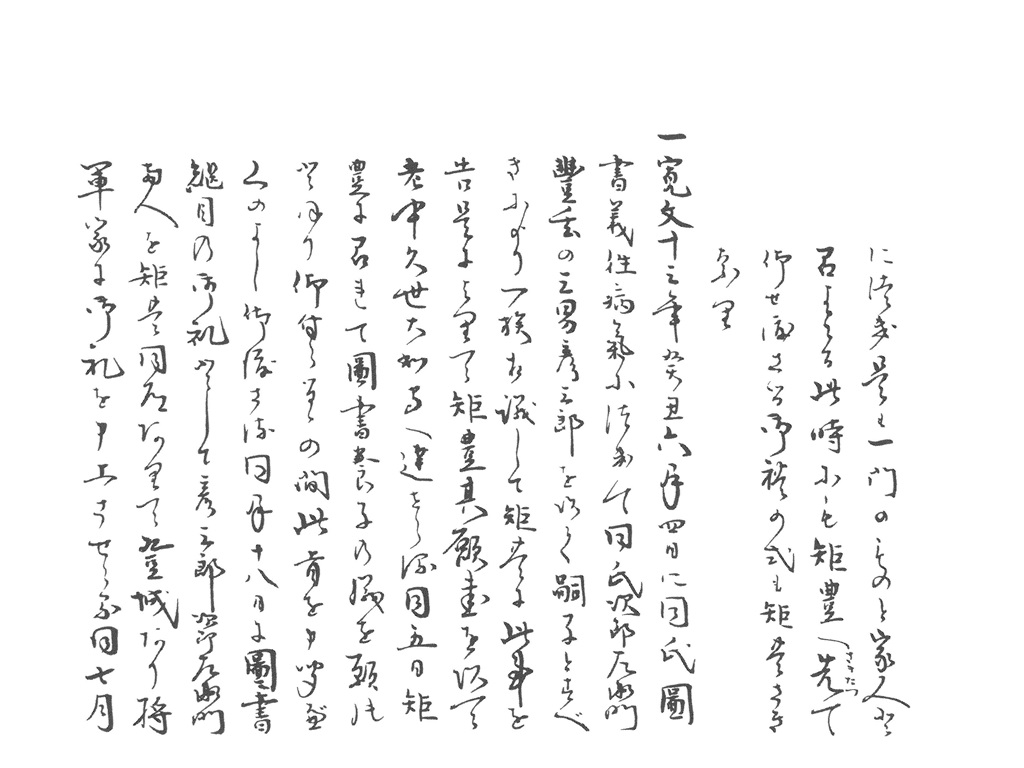 是も一門のものと家人
此時にも矩豊へ先て
さきたつ
仰せ渡さる御禮の式も矩豊さき
な里
一寛文十三年癸丑六月四日に同氏圖
書義性病氣に付て同氏次郎左衛門
豊重の三男彦三郎を以て嗣子とすへ
きにより一族相議して矩豊に此事を
告是により里て矩豊其願書を以て
老中久世大和守へ達せらる同五日矩
豊に召れて圖書養子の儀を願の
ことくに仰付らるゝの間此旨を申聞へ
くのよし仰渡さる同月十八日に圖書
繼目の御礼として彦三郎次郎左衛門
両人を矩豊同道て登城あり将
軍家に御礼を申上させらる同七月